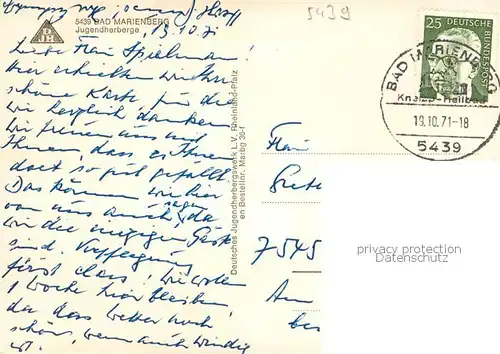 5439
5439 BAD MARIENBERG
Jugendherberge
19.10.71
Liebe Frau Spielmann!
Hier erhielten wir Ihre
schöne Karte, für die
wir herzlich danken
wir freuen uns mit
Ihnen, dass es Ihnen
dort so gut gefällt.
Das können wir hier
von uns auch sagen, da
wir die einzigen Gäste
sind. Verpflegung
first class! Wir wollen
1 Woche hier bleiben,
da das Wetter noch
schön, wenn auch windig
ist.
Deutsches Jugendherbergswerk L.V. Rheinland-Pfalz
en Bestellnr. Marbg 36-f
25
DEUTSCHE BUNDESPOST
BAD MARIENBERG
Kneipp-Heilbad
19.10.71-18
5439
Frau
Grete
7545
Am
bei
privacy protection
Datenschutz